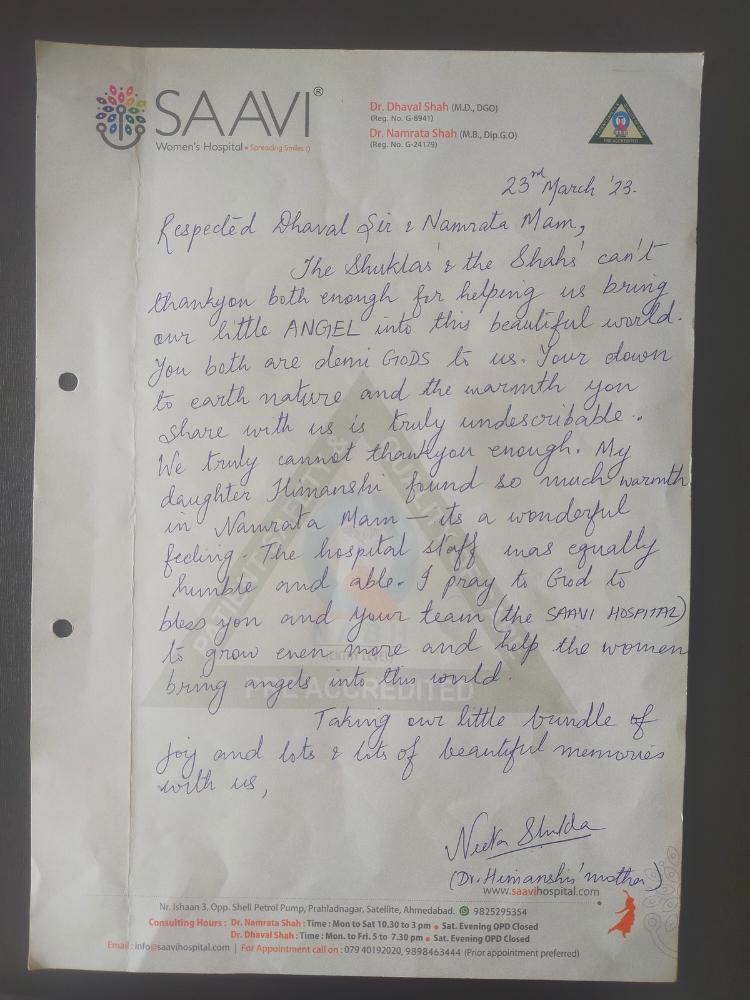 SAAVI®
Women's Hospital • Spreading Smiles :)
Dr. Dhaval Shah (M.D., DGO)
(Reg. No. G-8941)
Dr. Namrata Shah (M.B., Dip.G.O)
(Reg. No. G-24179)
PRE ACCREDITED
23rd March '23.
Respected Dhaval Sir & Namrata Mam,
The Shuklas' & the Shahs' can't
thankyou both enough for helping us bring
our little ANGEL into this beautiful world.
You both are demi GODS to us. Your down
to earth nature and the warmth you
share with us is truly undescribable..
We truly cannot thankyou enough. My
daughter Himanshi found so much warmth
in Namrata Mam — its a wonderful
feeling. The hospital staff was equally
humble and able. I pray to God to
bless you and your team (the SAAVI HOSPITAL)
to grow even more and help the women
bring angels into this world.
PRE ACCREDITED
Taking our little bundle of
joy and lots & lots of beautiful memories
with us,
Neeta Shukla
(Dr. Himanshis' mother)
www.saavihospital.com
Nr. Ishaan 3, Opp. Shell Petrol Pump, Prahladnagar, Satellite, Ahmedabad. 9825295354
Consulting Hours : Dr. Namrata Shah : Time : Mon to Sat 10.30 to 3 pm • Sat. Evening OPD Closed
Dr. Dhaval Shah : Time : Mon. to Fri. 5 to 7.30 pm • Sat. Evening OPD Closed
Email : info@saavihospital.com | For Appointment call on : 079 40192020, 9898463444 (Prior appointment preferred)